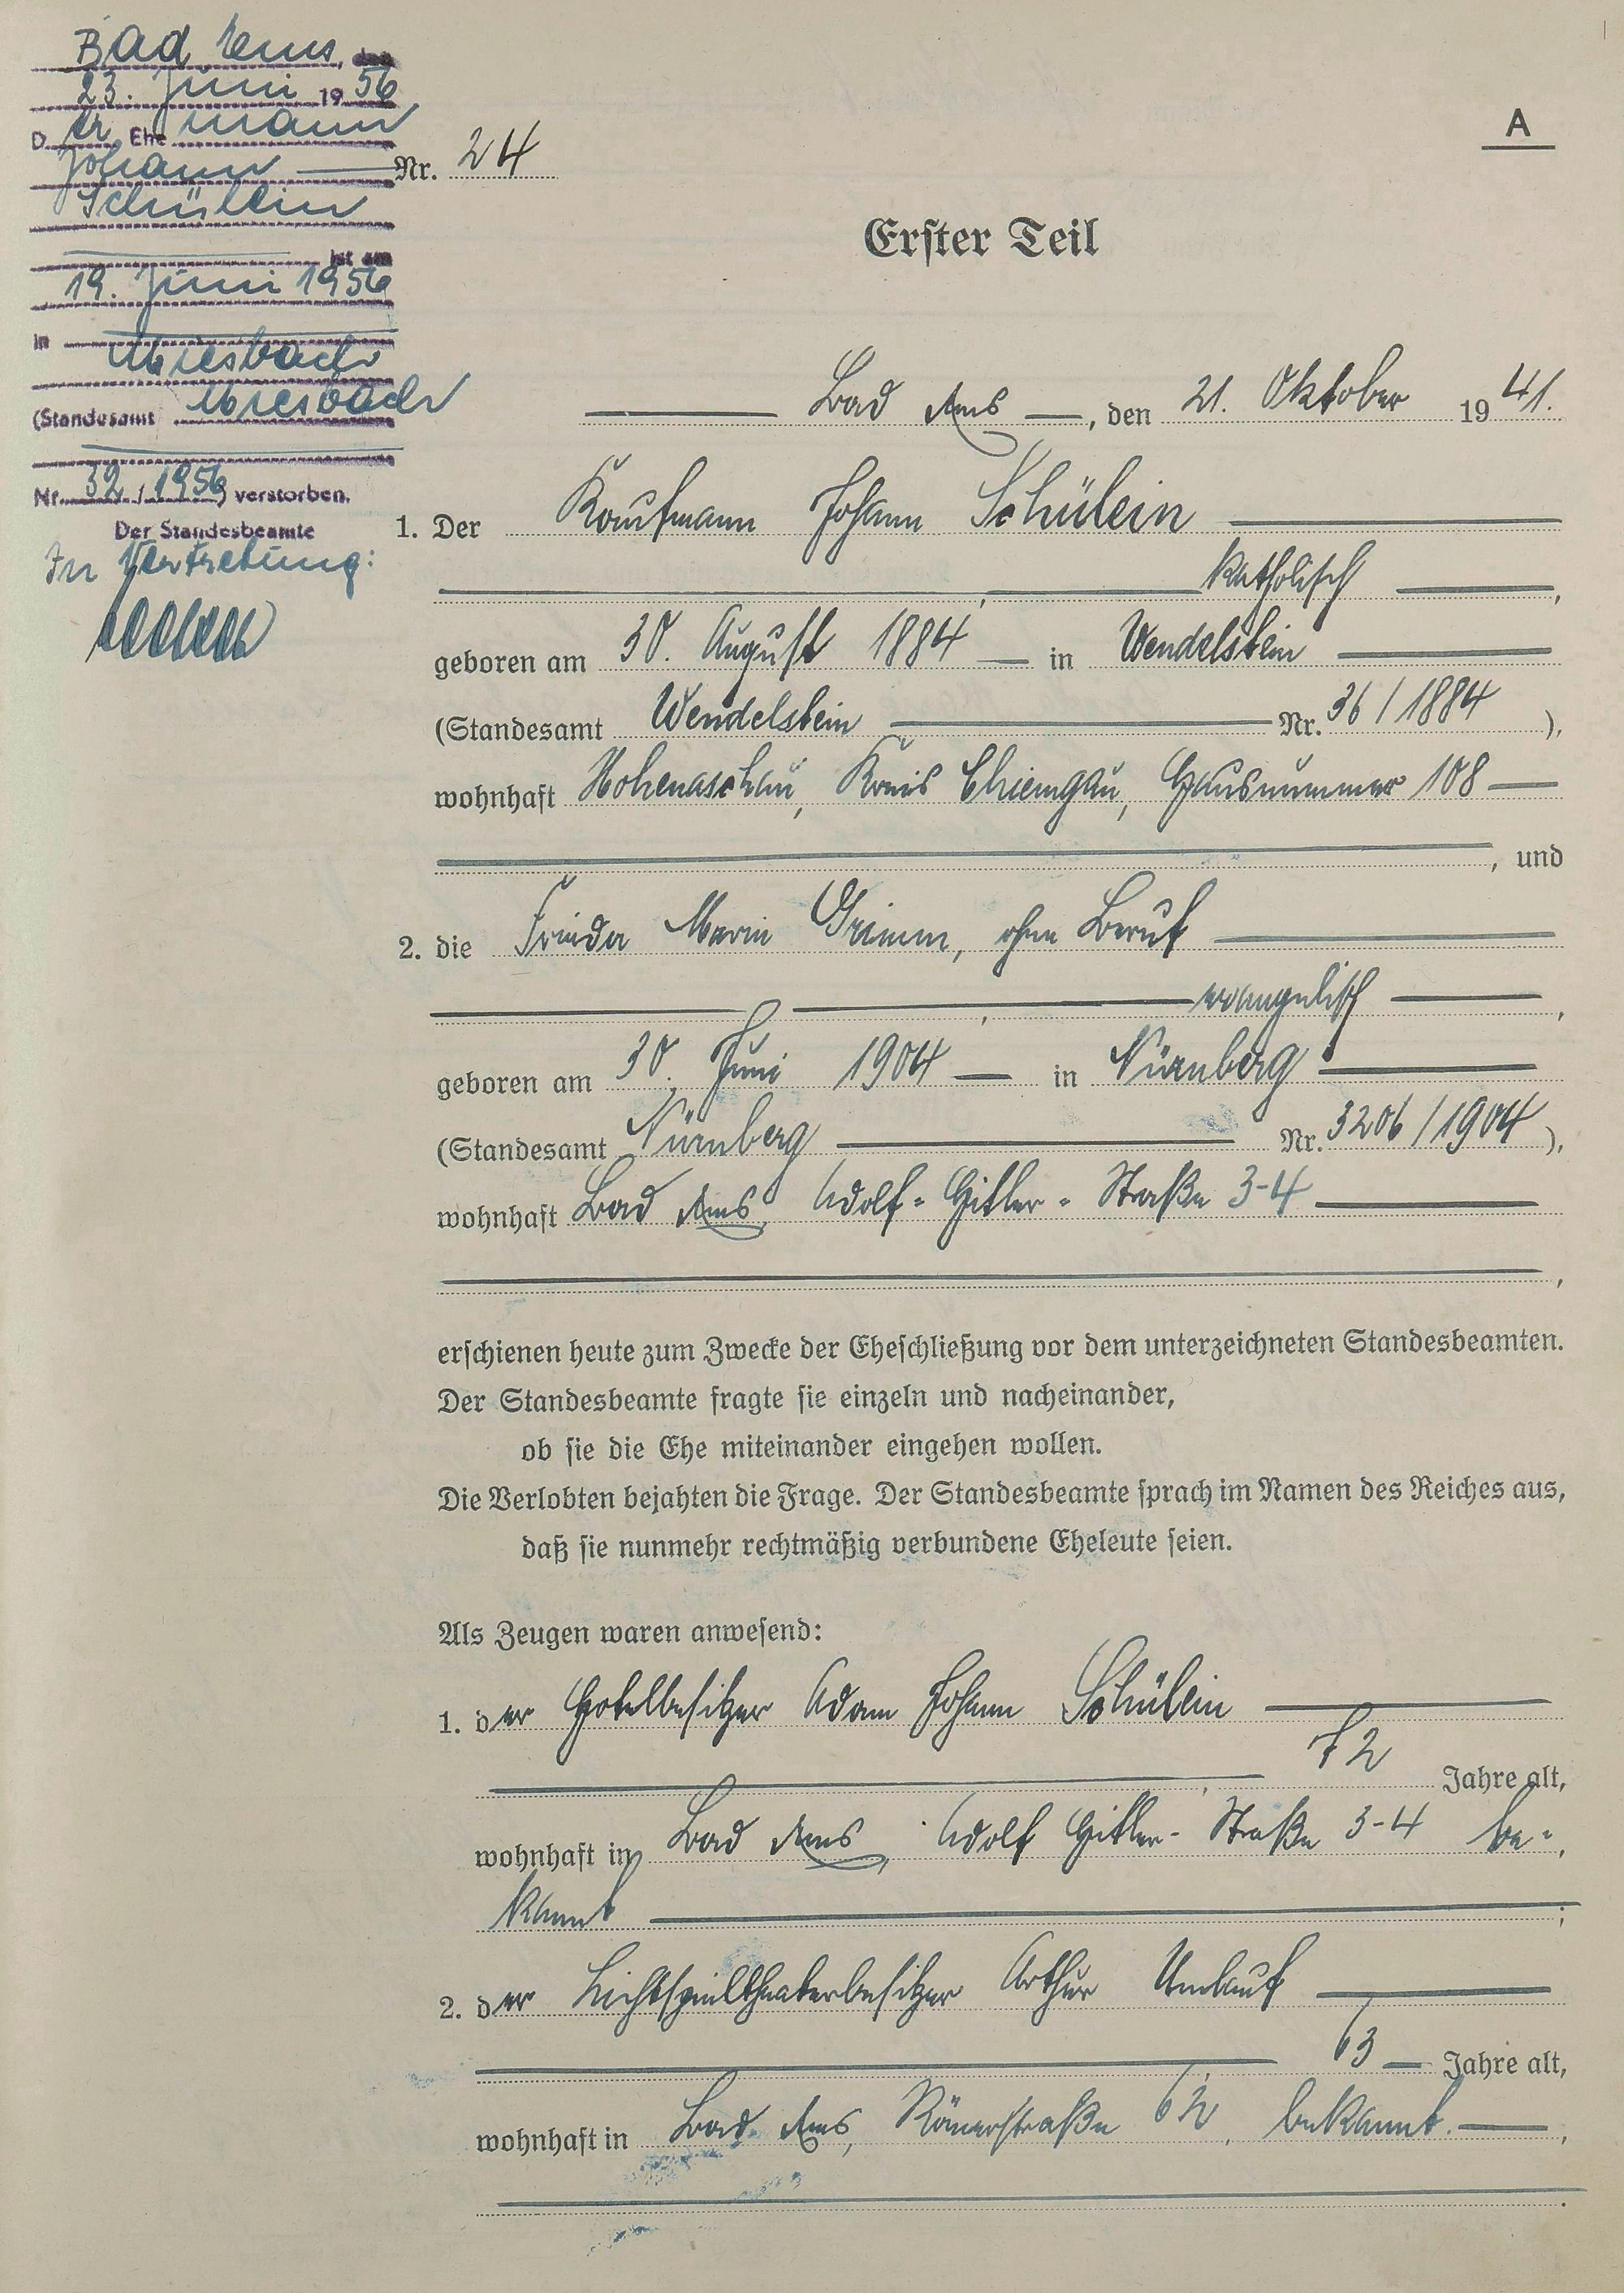 Bad Ems, den
23. Juni 1956
Der Ehemann
Johann
Schülein
ist am
19. Juni 1956
in
Miesbach
(Standesamt Miesbach
Nr. 32/1956) verstorben.
Der Standesbeamte
In Vertretung:
A
Nr. 24
Erster Teil
Bad Ems, den 21. Oktober 1941.
1. Der Kaufmann Johann Schülein
, katholisch,
geboren am 30. August 1884 in Wendelstein
(Standesamt Wendelstein Nr. 36/1884),
wohnhaft Hohenaschau, Kreis Chiemgau, Hausnummer 108
, und
2. die Frieda Maria Grimm, ohne Beruf
, evangelisch,
geboren am 30. Juni 1904 in Nürnberg
(Standesamt Nürnberg Nr. 3206/1904),
wohnhaft Bad Ems, Adolf-Hitler-Straße 3-4
,
erschienen heute zum Zwecke der Eheschließung vor dem unterzeichneten Standesbeamten.
Der Standesbeamte fragte sie einzeln und nacheinander,
ob sie die Ehe miteinander eingehen wollen.
Die Verlobten bejahten die Frage. Der Standesbeamte sprach im Namen des Reiches aus,
daß sie nunmehr rechtmäßig verbundene Eheleute seien.
Als Zeugen waren anwesend:
1. der Hotelbesitzer Adam Johann Schülein
, 72 Jahre alt,
wohnhaft in Bad Ems, Adolf Hitler-Straße 3-4 be-,
kannt ;
2. der Lichtspieltheaterbesitzer Arthur Umlauf
63 Jahre alt,
wohnhaft in Bad Ems, Römerstraße 62, bekannt. ,
.